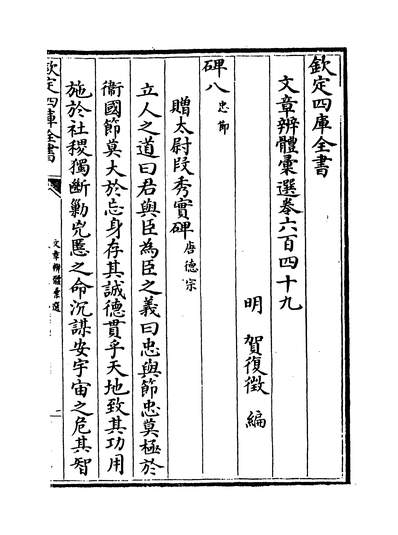 欽定四庫全書
文章辨體彚選卷六百四十九
明 賀復徵 編
碑八忠節
贈太尉段秀實碑唐德宗
立人之道曰君與臣為臣之義曰忠與節忠莫極於
衞國節莫大於忘身存其誠德貫乎天地致其功用
施於社稷獨斷勦兇慝之命沉謀安宇宙之危其智
欽定四庫全書
文章辨體彚選